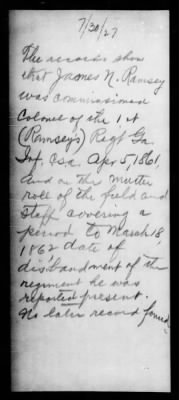 7/30/27
The records show
that James N. Ramsey
was commissioned
Colonel of the 1st
(Ramsey's) Regt Ga
Inf, Csa. Apr 5, 1861,
and on the muster
roll of the field and
staff covering a
period to March 18,
1862 date of
disbandment of the
regiment he was
reported present.
No later record found.